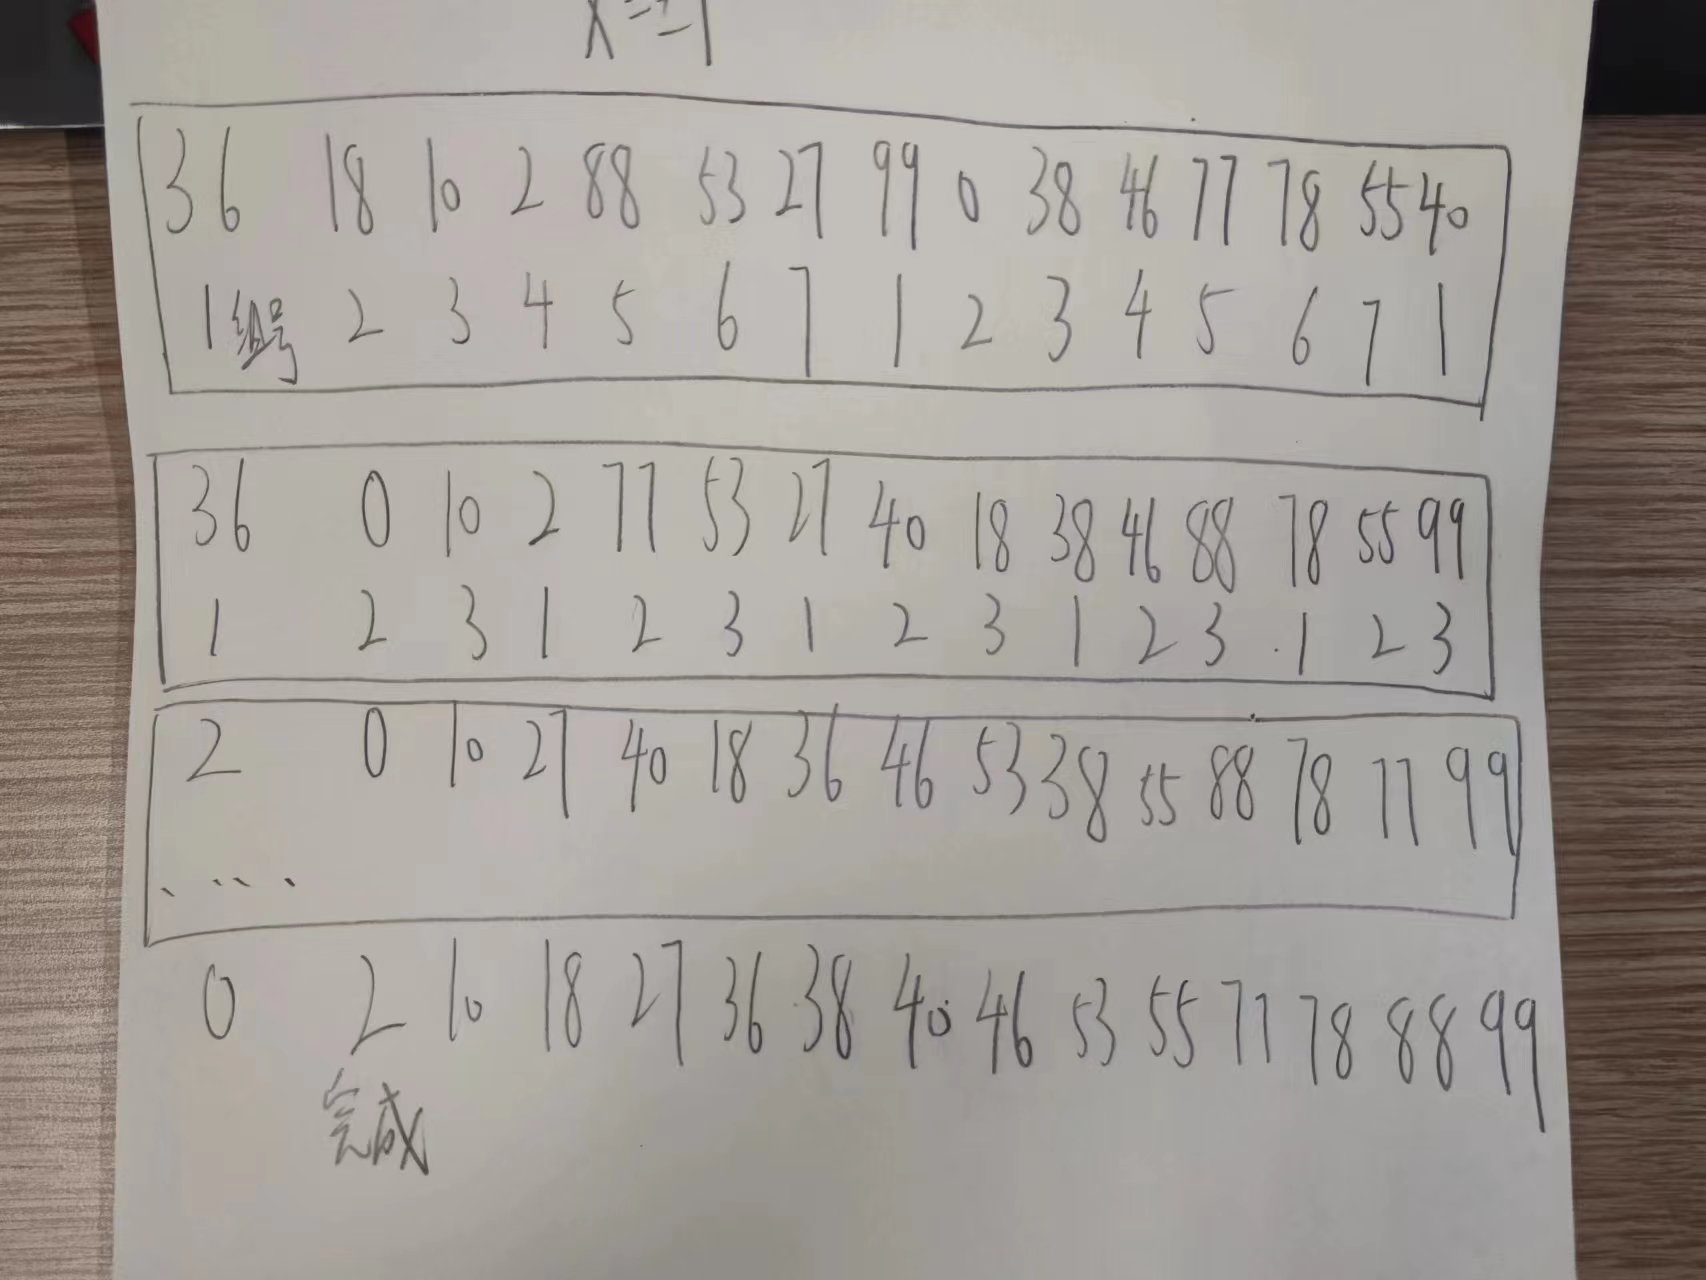 x=±1
36 18 10 2 88 53 27 99 0 38 46 77 78 55 40
1编号 2 3 4 5 6 7 1 2 3 4 5 6 7 1
36 0 10 2 77 53 27 40 18 38 46 88 78 55 99
1 2 3 1 2 3 1 2 3 1 2 3 1 2 3
2 0 10 27 40 18 36 46 53 38 55 88 78 77 99
.....
0 2 10 18 27 36 38 40 46 53 55 77 78 88 99
完成